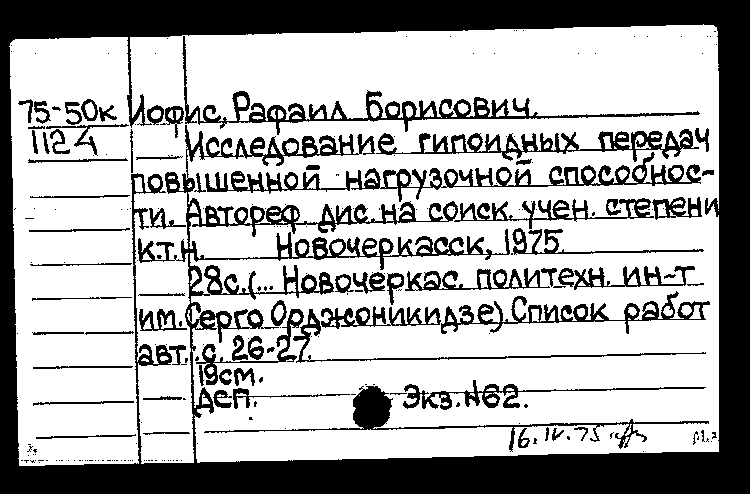 75-50к Иофис, Рафаил Борисович.
1124 Исследование гипоидных передач
повышенной нагрузочной способнос-
ти. Автореф. дис. на соиск. учен. степени
к.т.н. Новочеркасск, 1975.
28с. (... Новочеркас. политехн. ин-т
им. Серго Орджоникидзе). Список работ
авт.: с. 26-27.
19см.
Деп. Экз. №62.
16.IV.75